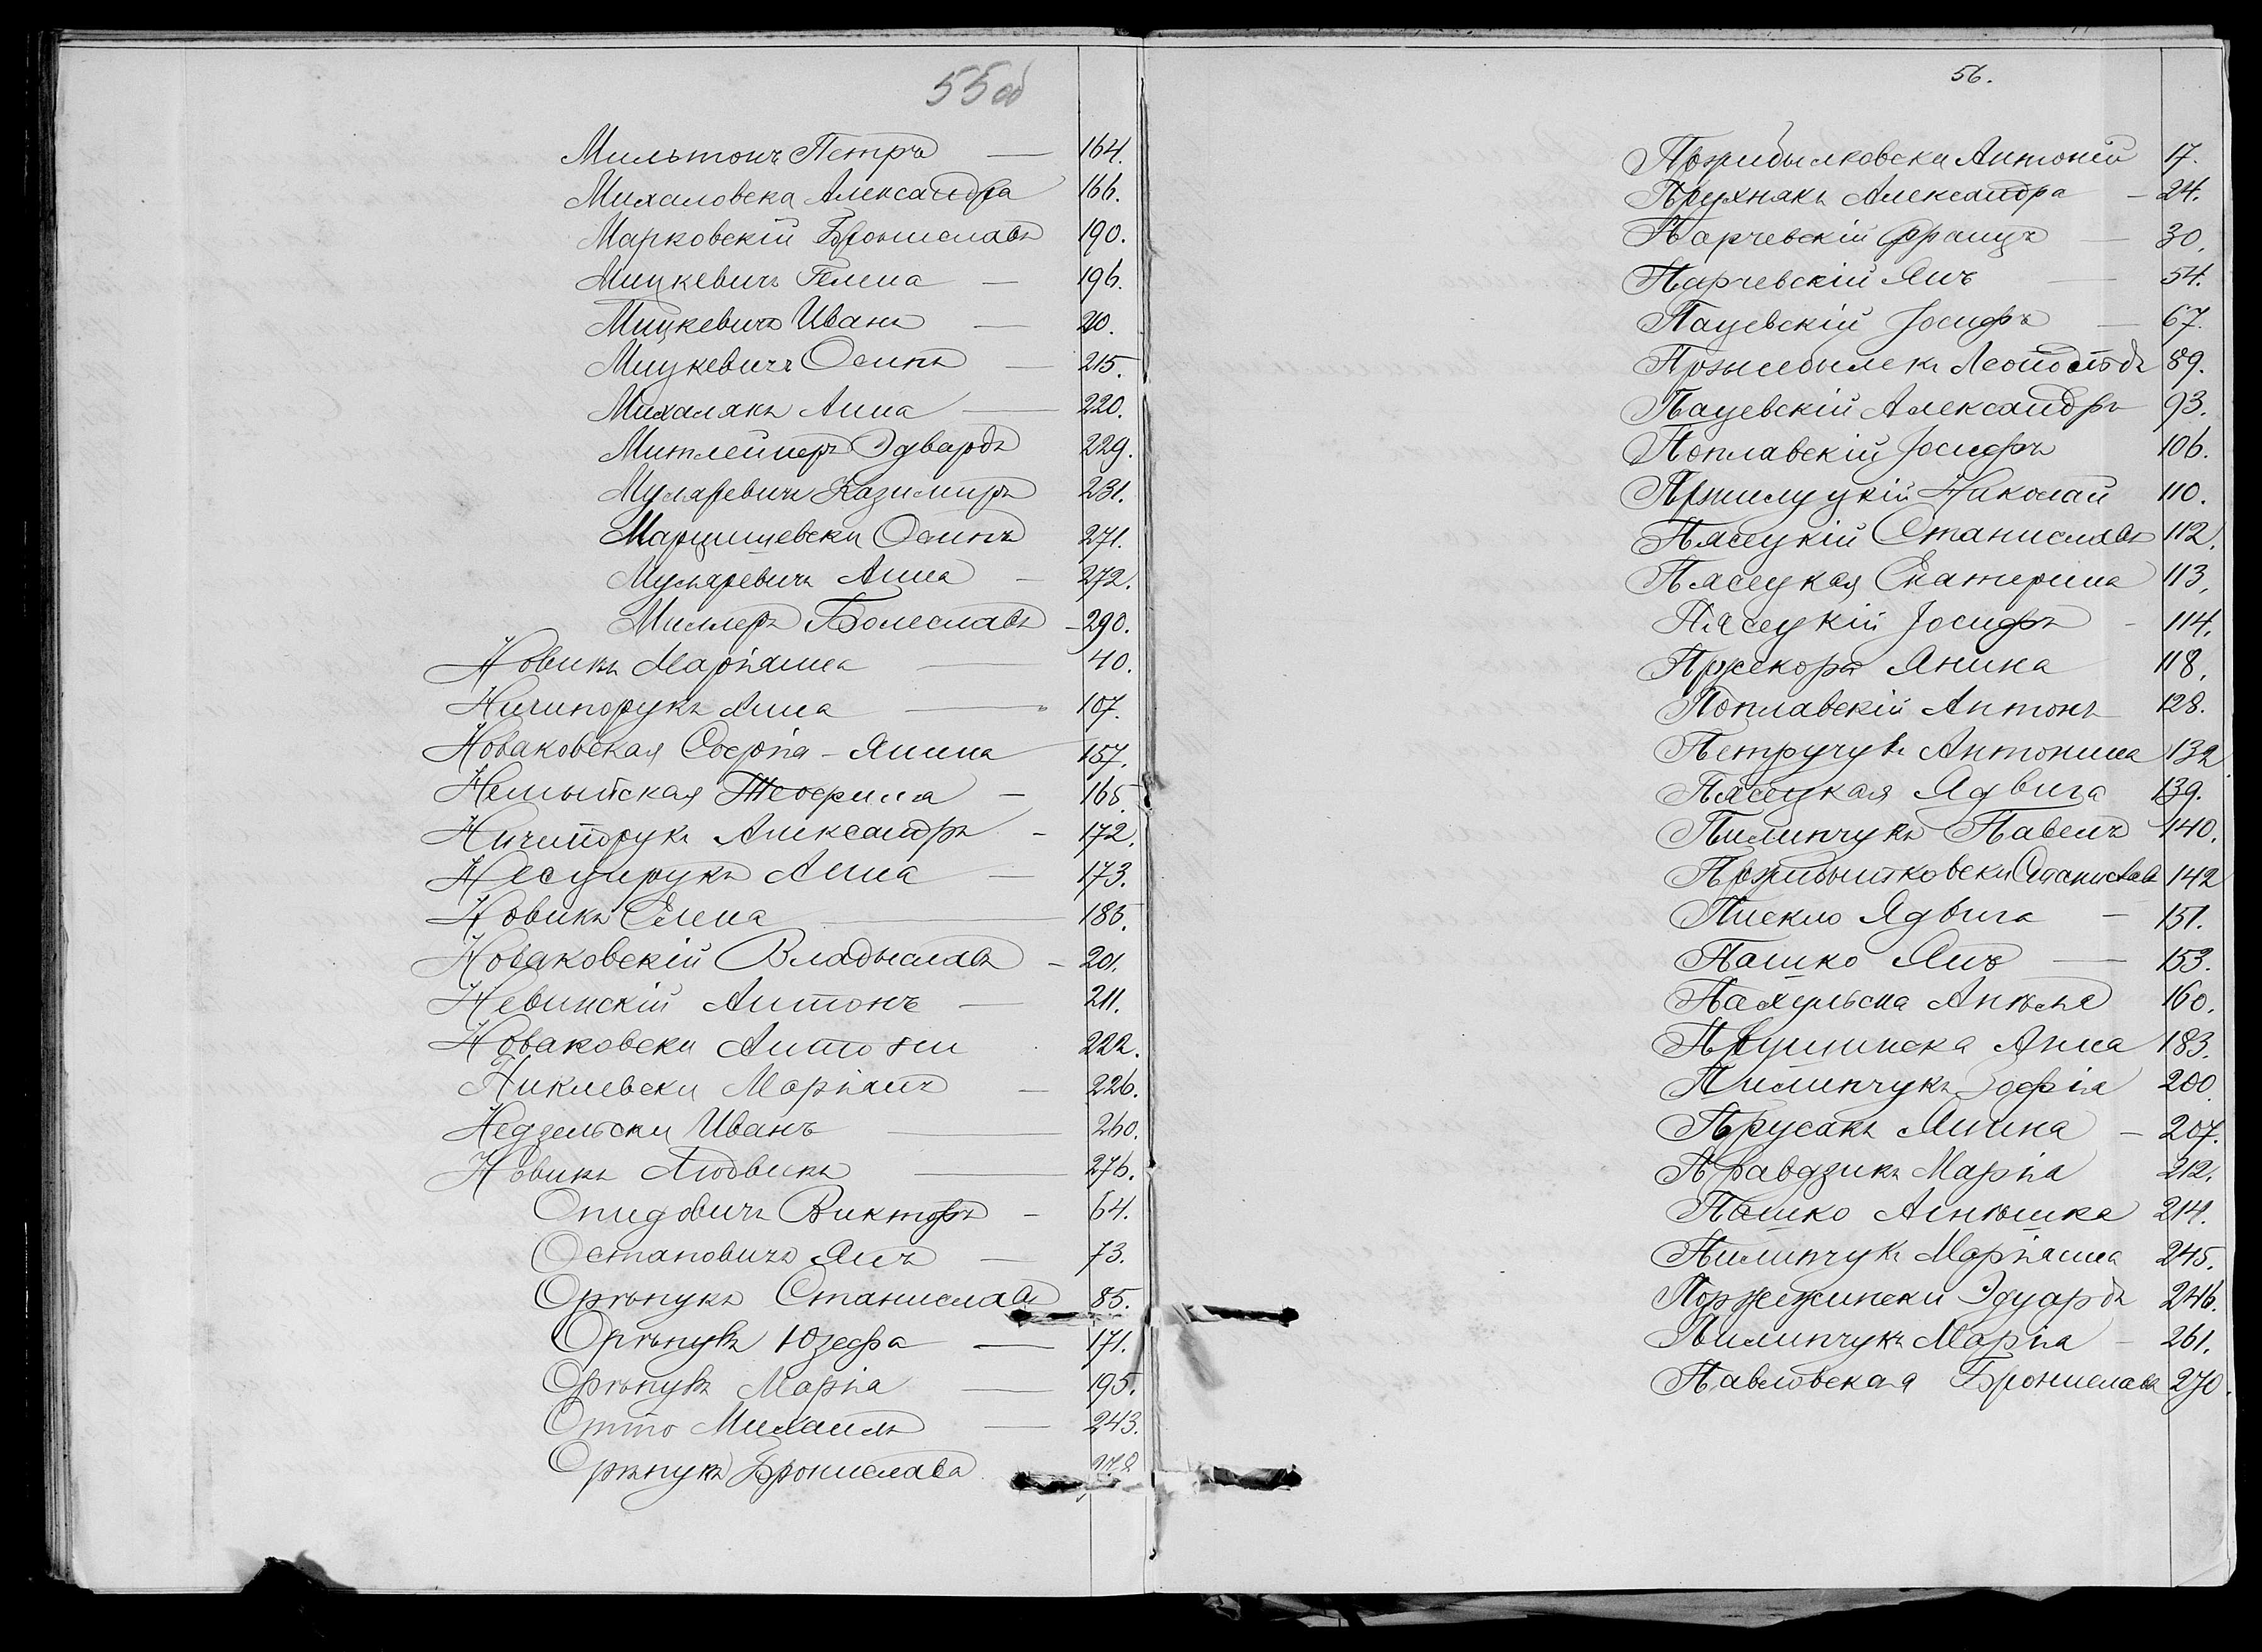 55 об
Мильтонъ Петръ — 164.
Михаловска Александра 166.
Марковскій Брониславъ 190.
Мицкевичъ Гелена — 196.
Мицкевичъ Иванъ — 210.
Мицкевичъ Осипъ — 215.
Михалякъ Анна — 220.
Митлейнеръ Эдвардъ 229.
Муляревичъ Казимиръ 231.
Марцишевски Осипъ 271.
Муляревичъ Анна — 272.
Миллеръ Болеславъ — 290.
Новикъ Маріанна — 40.
Ничипорукъ Анна — 107.
Новаковская Софія-Янина 157.
Немыйская Теофила — 165.
Ничипорукъ Александръ — 172.
Несцирукъ Анна — 173.
Новикъ Елена — 185.
Новаковскій Владыславъ — 201.
Невинскій Антонъ — 211.
Новаковски Антони 222.
Никлевски Маріанъ — 226.
Недзельски Иванъ — 260.
Новикъ Людвикъ — 276.
Опидовичъ Викторъ — 64.
Остановичъ Янъ — 73.
Орѣпукъ Станиславъ 85.
Орѣпукъ Юзефа — 171.
Орѣпукъ Марія — 195.
Отто Михаилъ — 243.
Орѣпукъ Бронислава 278
56.
Пржибылковски Антоній 17.
Прухнякъ Александра — 24.
Парчевскій Францъ — 30.
Парчевскій Янъ — 54.
Пацевскій Іосифъ — 67.
Леопольдъ 89.
Пацевскій Александръ 93.
Поплавскій Іосифъ 106.
Пржилуцкій Николай 110.
Пясецкій Станиславъ 112.
Пясецкая Екатерина 113.
Пясецкій Іосифъ — 114.
Пржекора Янина 118.
Поплавскій Антонъ 128.
Петручукъ Антонина 132
Пясецкая Ядвига 139.
Пилипчукъ Павелъ — 140.
Станиславъ 142
Пиекло Ядвига — 151.
Пашко Янъ — 153.
Пахульска Анѣля 160.
Прушинска Анна 183.
Пилипчукъ Зофія 200.
Прусакъ Янина — 207.
Правдзикъ Марія 212.
Пашко Агнѣшка 214.
Пилипчукъ Маріанна 245.
Поржежински Эдуардъ 246.
Пилипчукъ Марія — 261.
Павловская Бронислава 270.